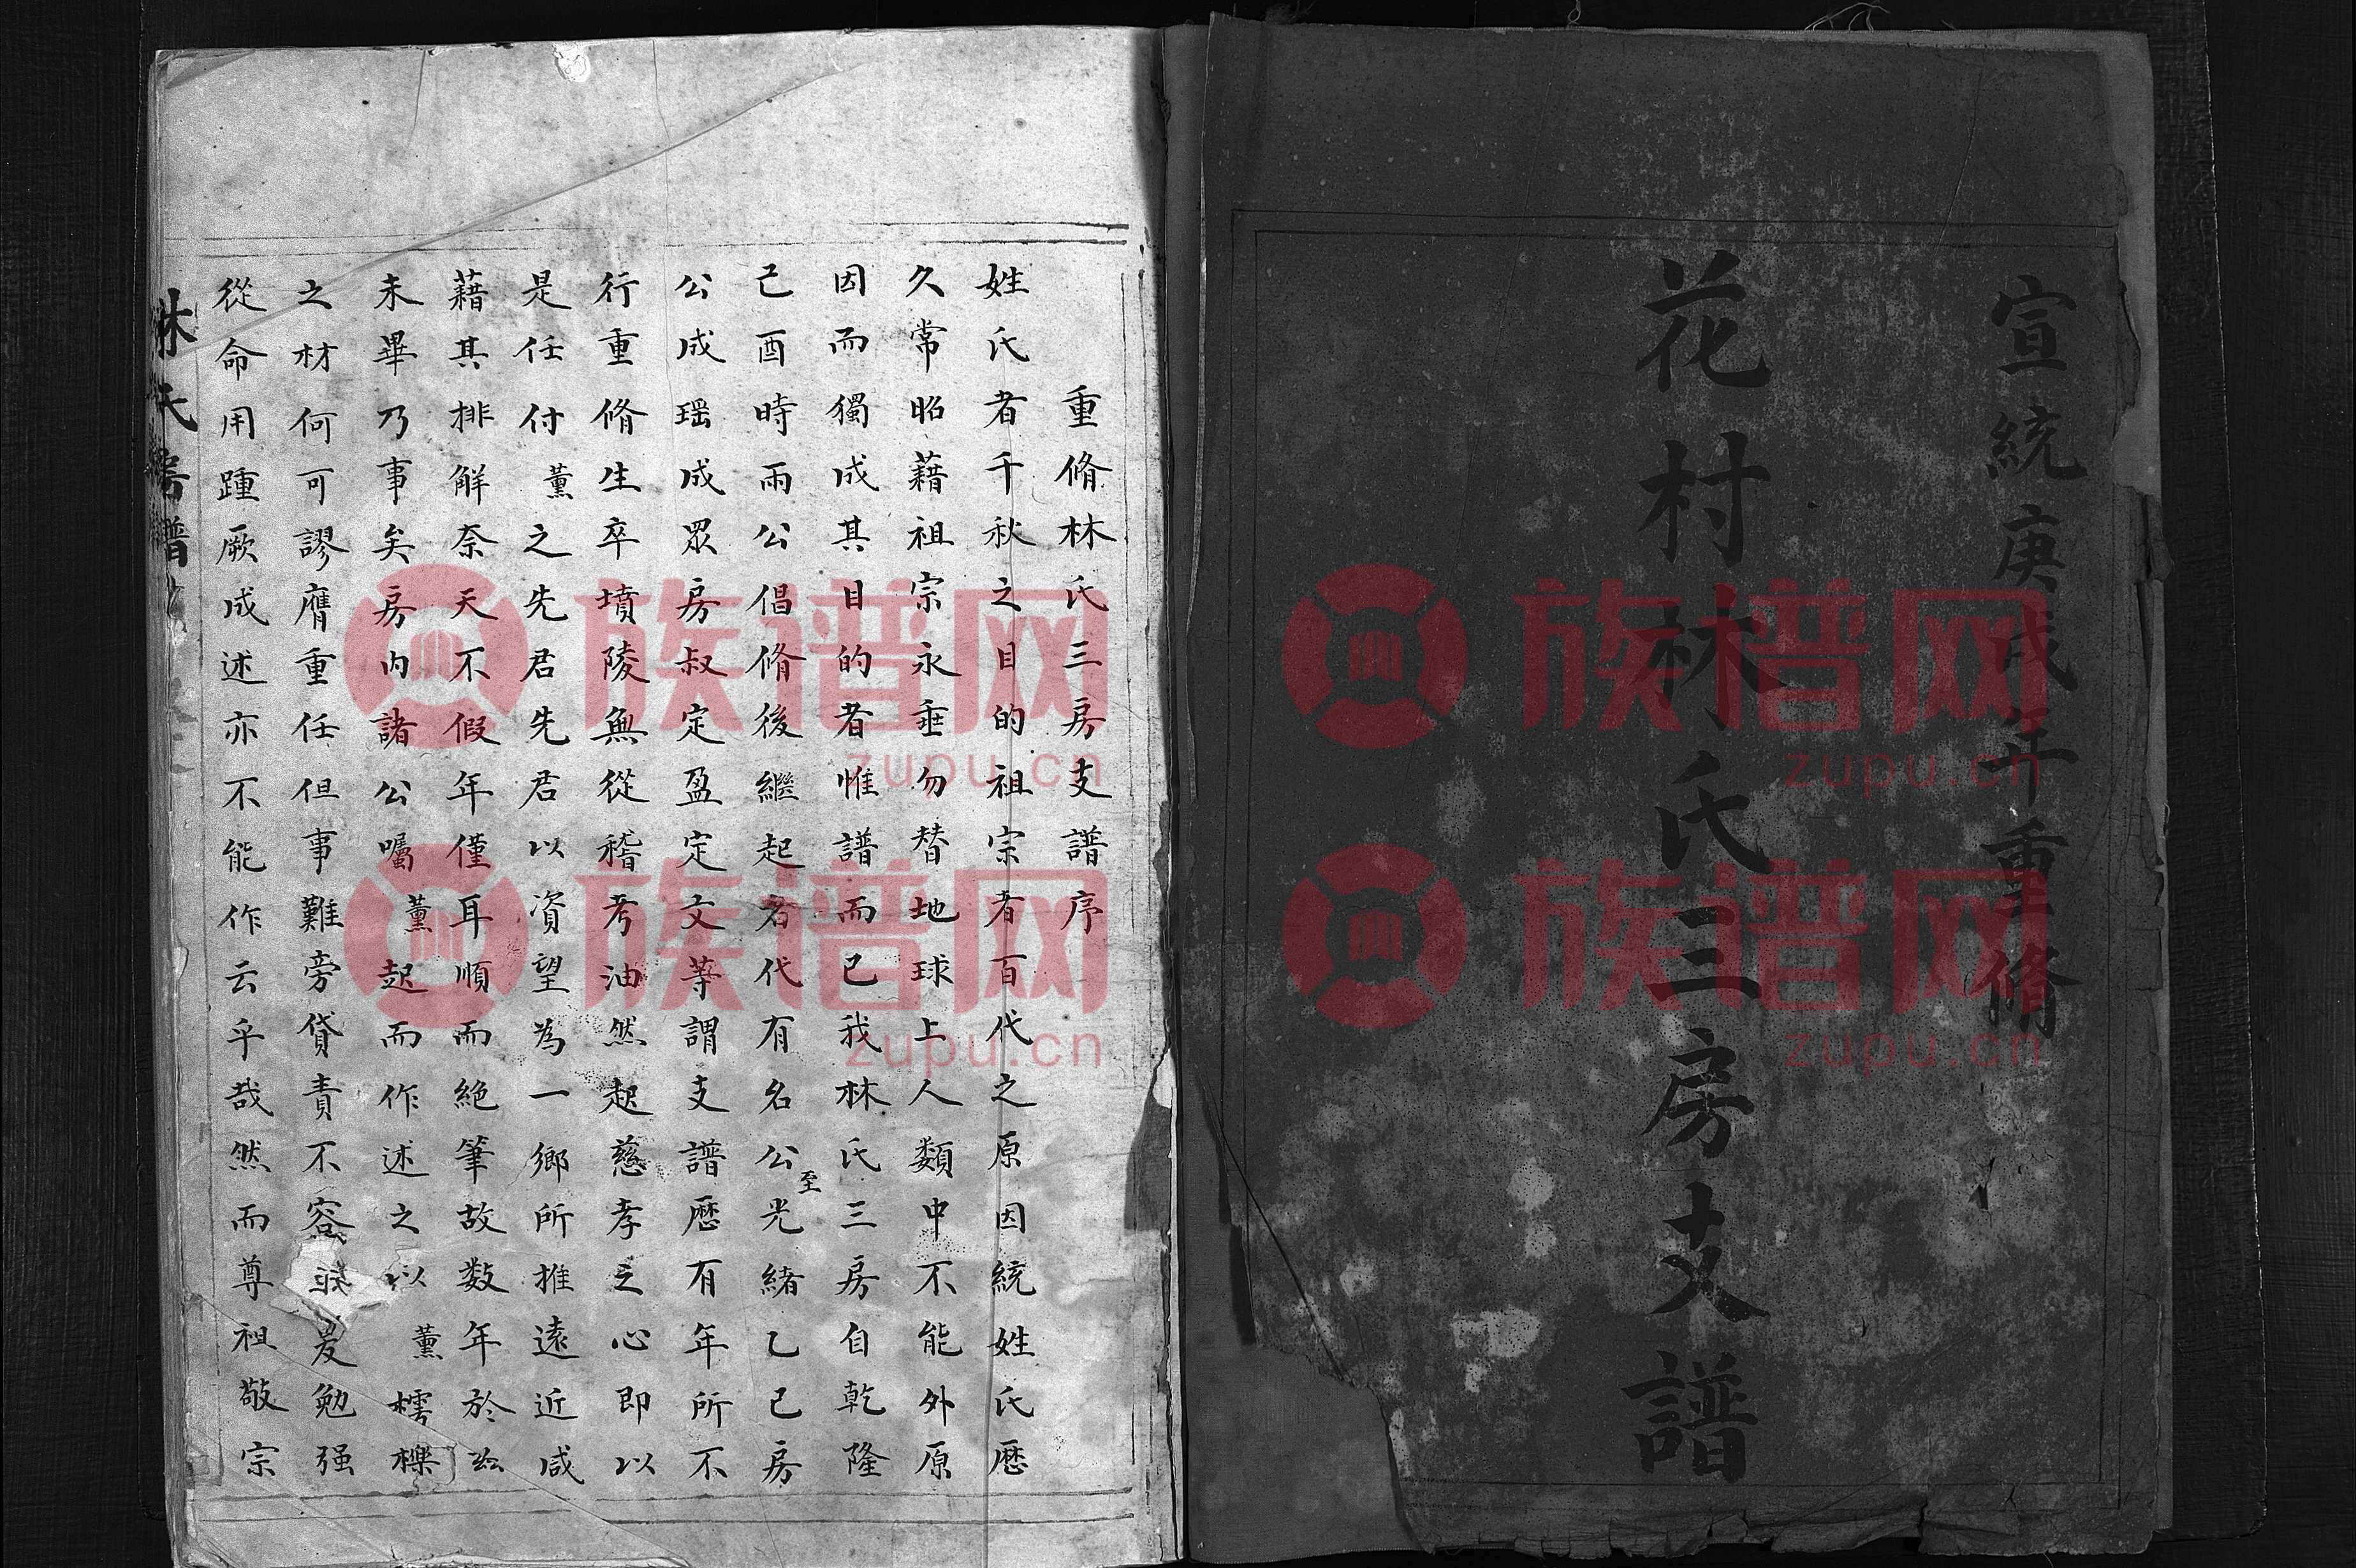 宣統庚戌年重脩
花村林氏三房支譜
重脩林氏三房支譜序
姓氏者千秋之目的祖宗者百代之原因統姓氏歷
久常昭藉祖宗永垂勿替地球上人類中不能外原
因而獨成其目的者惟譜而已我林氏三房自乾隆
己酉時雨公倡脩後繼起者代有名公至光緒乙巳房
公成瑶成眾房叔定盈定文等謂支譜歷有年所不
行重脩生卒墳陵無從稽考油然起慈孝之心即以
是任付薰之先君先君以資望為一鄉所推遠近咸
藉其排解奈天不假年僅耳順而絕筆故数年於玆
未畢乃事矣房內諸公囑薰起而作述之以薰樗櫟
之材何可謬膺重任但事難旁貸責不容爰勉强
從命用踵厥成述亦不能作云乎哉然而尊祖敬宗
林氏房譜
族谱网
zupu.cn
族谱网
zupu.cn
族谱网
zupu.cn
族谱网
zupu.cn